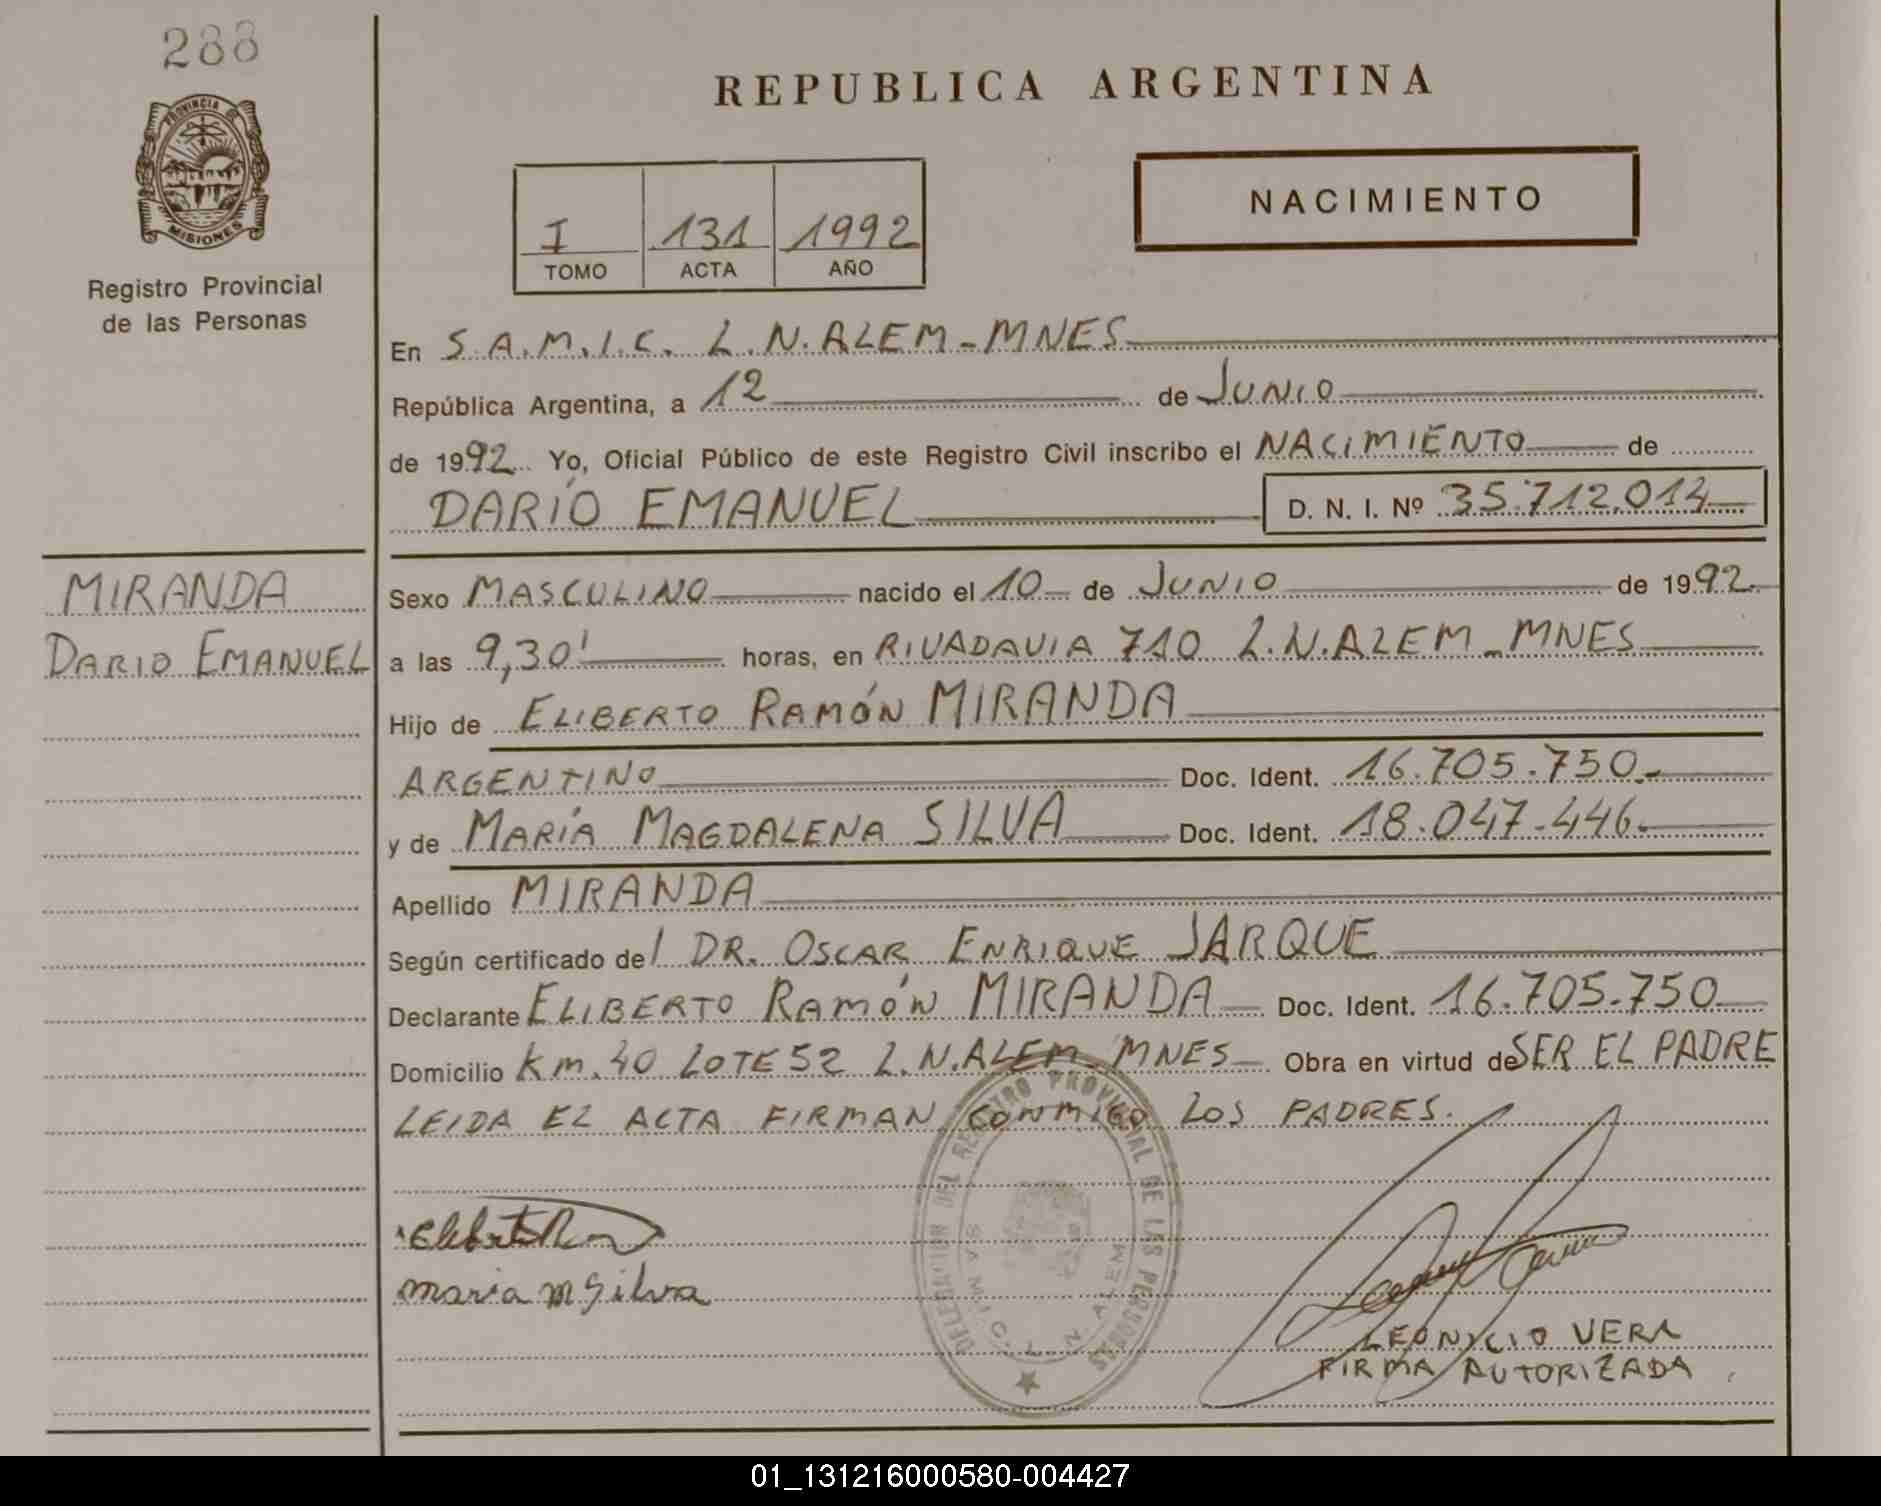 288
REPUBLICA ARGENTINA
PROVINCIA DE
MISIONES
NACIMIENTO
I 131 1992
TOMO ACTA AÑO
Registro Provincial
de las Personas
En S.A.M.I.C. L.N.ALEM-MNES
República Argentina, a 12 de JUNIO
de 1992 Yo, Oficial Público de este Registro Civil inscribo el NACIMIENTO de
DARÍO EMANUEL D. N. I. Nº 35.712.014
MIRANDA
DARIO EMANUEL
Sexo MASCULINO nacido el 10 de JUNIO de 1992
a las 9,30' horas, en RIVADAVIA 710 L.N.ALEM-MNES
Hijo de ELIBERTO RAMÓN MIRANDA
ARGENTINO Doc. Ident. 16.705.750.-
y de MARÍA MAGDALENA SILVA Doc. Ident. 18.047.446.
Apellido MIRANDA
Según certificado del DR. OSCAR ENRIQUE JARQUE
Declarante ELIBERTO RAMÓN MIRANDA Doc. Ident. 16.705.750
Domicilio Km. 40 LOTE 52 L.N.ALEM-MNES Obra en virtud de SER EL PADRE
LEIDA EL ACTA FIRMAN CONMIGO LOS PADRES.
maria m Silva
DELEGACION DEL REGISTRO PROVINCIAL DE LAS PERSONAS
S.A.M.I.C. L. N. ALEM
LEONICIO VERA
FIRMA AUTORIZADA
01_131216000580-004427